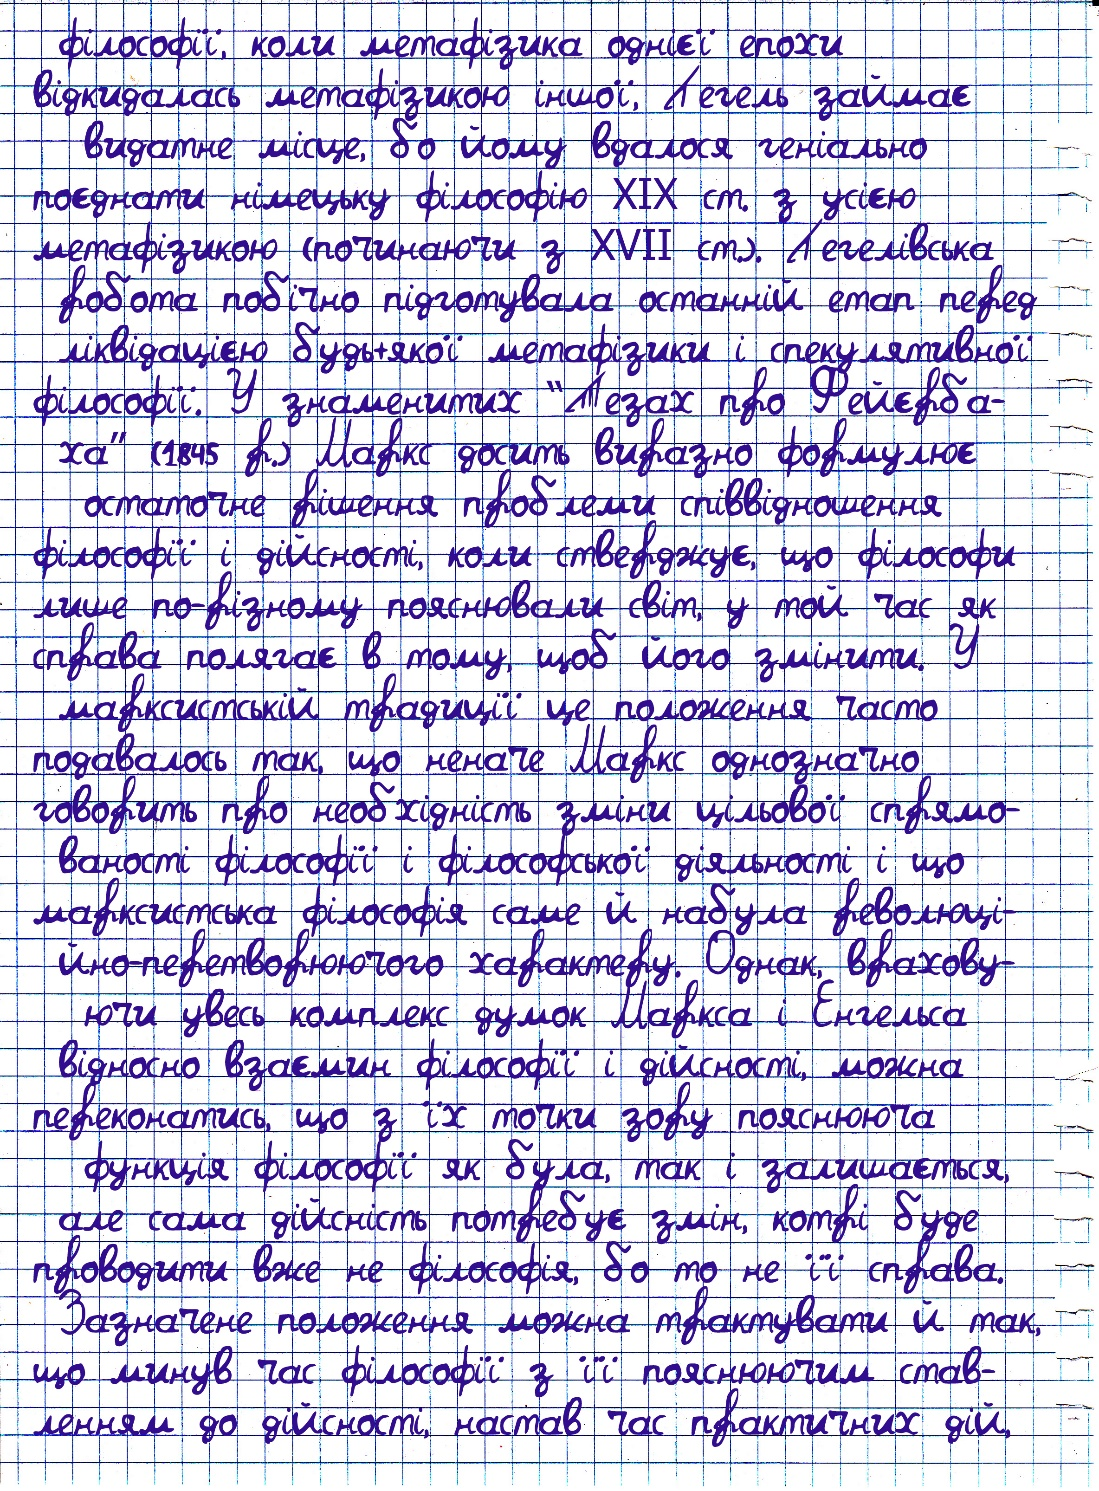 філософії, коли метафізика однієї епохи
відкидалась метафізикою іншої, Гегель займає
видатне місце, бо йому вдалося геніально
поєднати німецьку філософію XIX ст. з усією
метафізикою (починаючи з XVII ст.). Гегелівська
робота побічно підготувала останній етап перед
ліквідацією будь+якої метафізики і спекулятивної
філософії. У знаменитих "Тезах про Фейєрба-
ха" (1845 р.) Маркс досить виразно формулює
остаточне рішення проблеми співвідношення
філософії і дійсності, коли стверджує, що філософи
лише по-різному пояснювали світ, у той час як
справа полягає в тому, щоб його змінити. У
марксистській традиції це положення часто
подавалось так, що неначе Маркс однозначно
говорить про необхідність зміни цільової спрямо-
ваності філософії і філософської діяльності і що
марксистська філософія саме й набула революці-
йно-перетворюючого характеру. Однак, врахову-
ючи увесь комплекс думок Маркса і Енгельса
відносно взаємин філософії і дійсності, можна
переконатись, що з їх точки зору пояснююча
функція філософії як була, так і залишається,
але сама дійсність потребує змін, котрі буде
проводити вже не філософія, бо то не її справа.
Зазначене положення можна трактувати й так,
що минув час філософії з її пояснюючим став-
ленням до дійсності, настав час практичних дій,